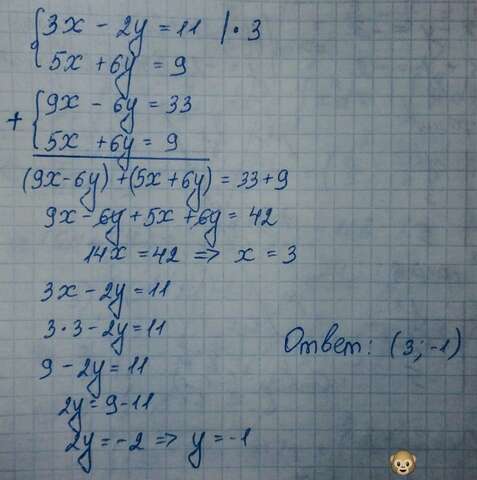 {3x - 2y = 11 | · 3
5x + 6y = 9
+ {9x - 6y = 33
5x + 6y = 9
(9x-6y) + (5x + 6y) = 33+9
9x - 6y + 5x + 6y = 42
14x = 42 => x = 3
3x - 2y = 11
3·3 - 2y = 11
9 - 2y = 11
2y = 9-11
2y = -2 => y = -1
Ответ: (3; -1)